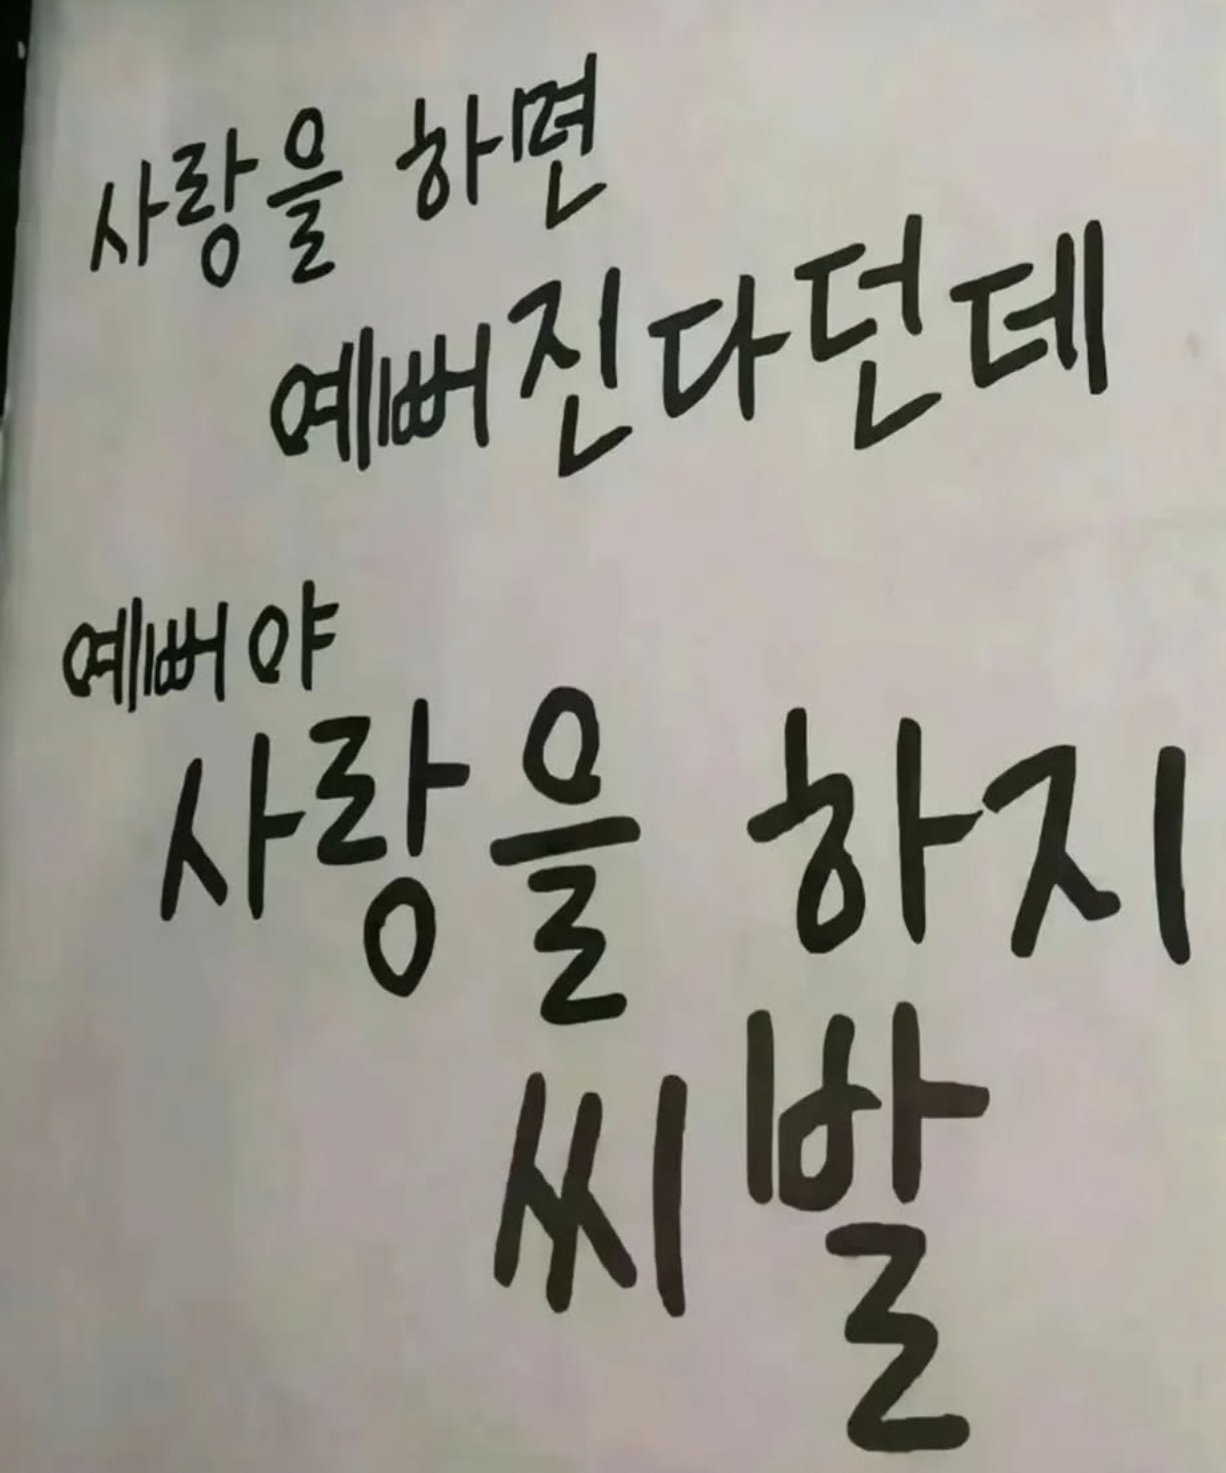 사랑을 하면
예뻐진다던데
예뻐야
사랑을 하지
씨발